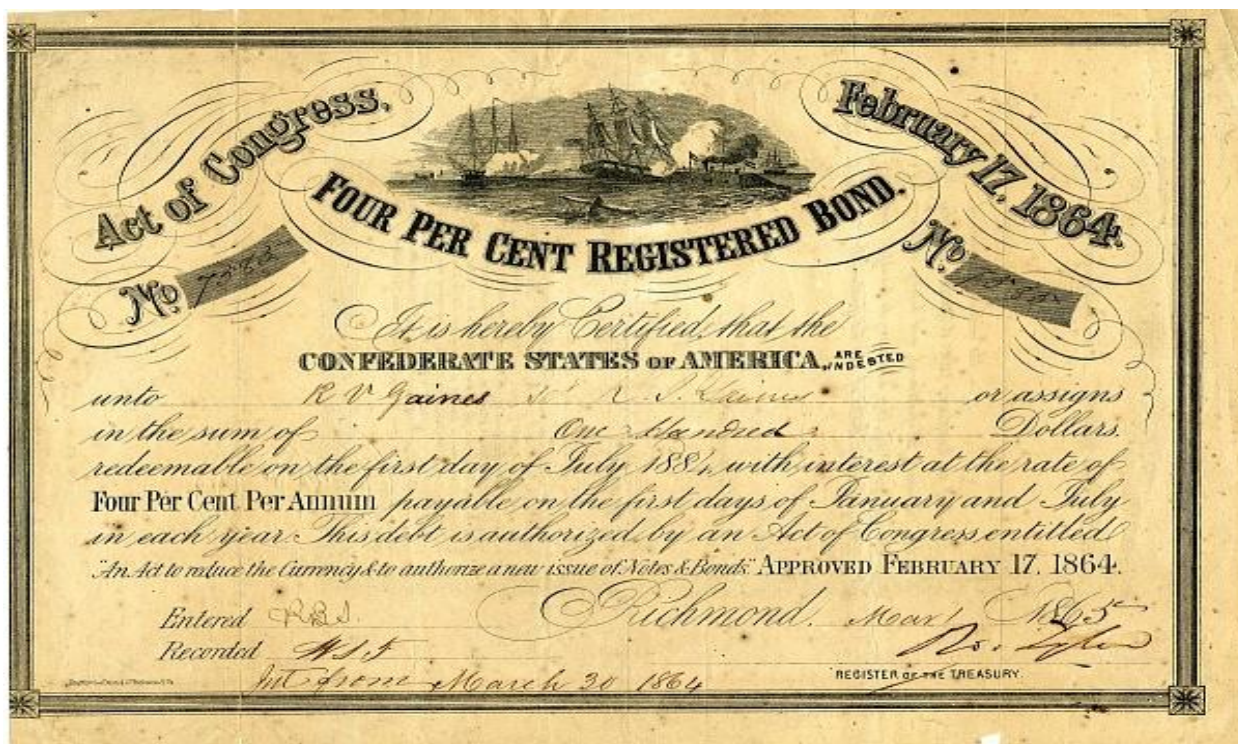 Act of Congress.
February 17, 1864.
FOUR PER CENT REGISTERED BOND.
No
No
It is hereby Certified, that the
CONFEDERATE STATES OF AMERICA, ARE INDEBTED
unto R V Gaines or assigns
in the sum of One Hundred Dollars.
redeemable on the first day of July 1884, with interest at the rate of
Four Per Cent Per Annum payable on the first days of January and July
in each year. This debt is authorized by an Act of Congress entitled
"An Act to reduce the Currency & to authorize a new issue of Notes & Bonds." APPROVED FEBRUARY 17, 1864.
Entered
Richmond. Mar 1 1865
Recorded
REGISTER OF THE TREASURY.
Int from March 30 1864